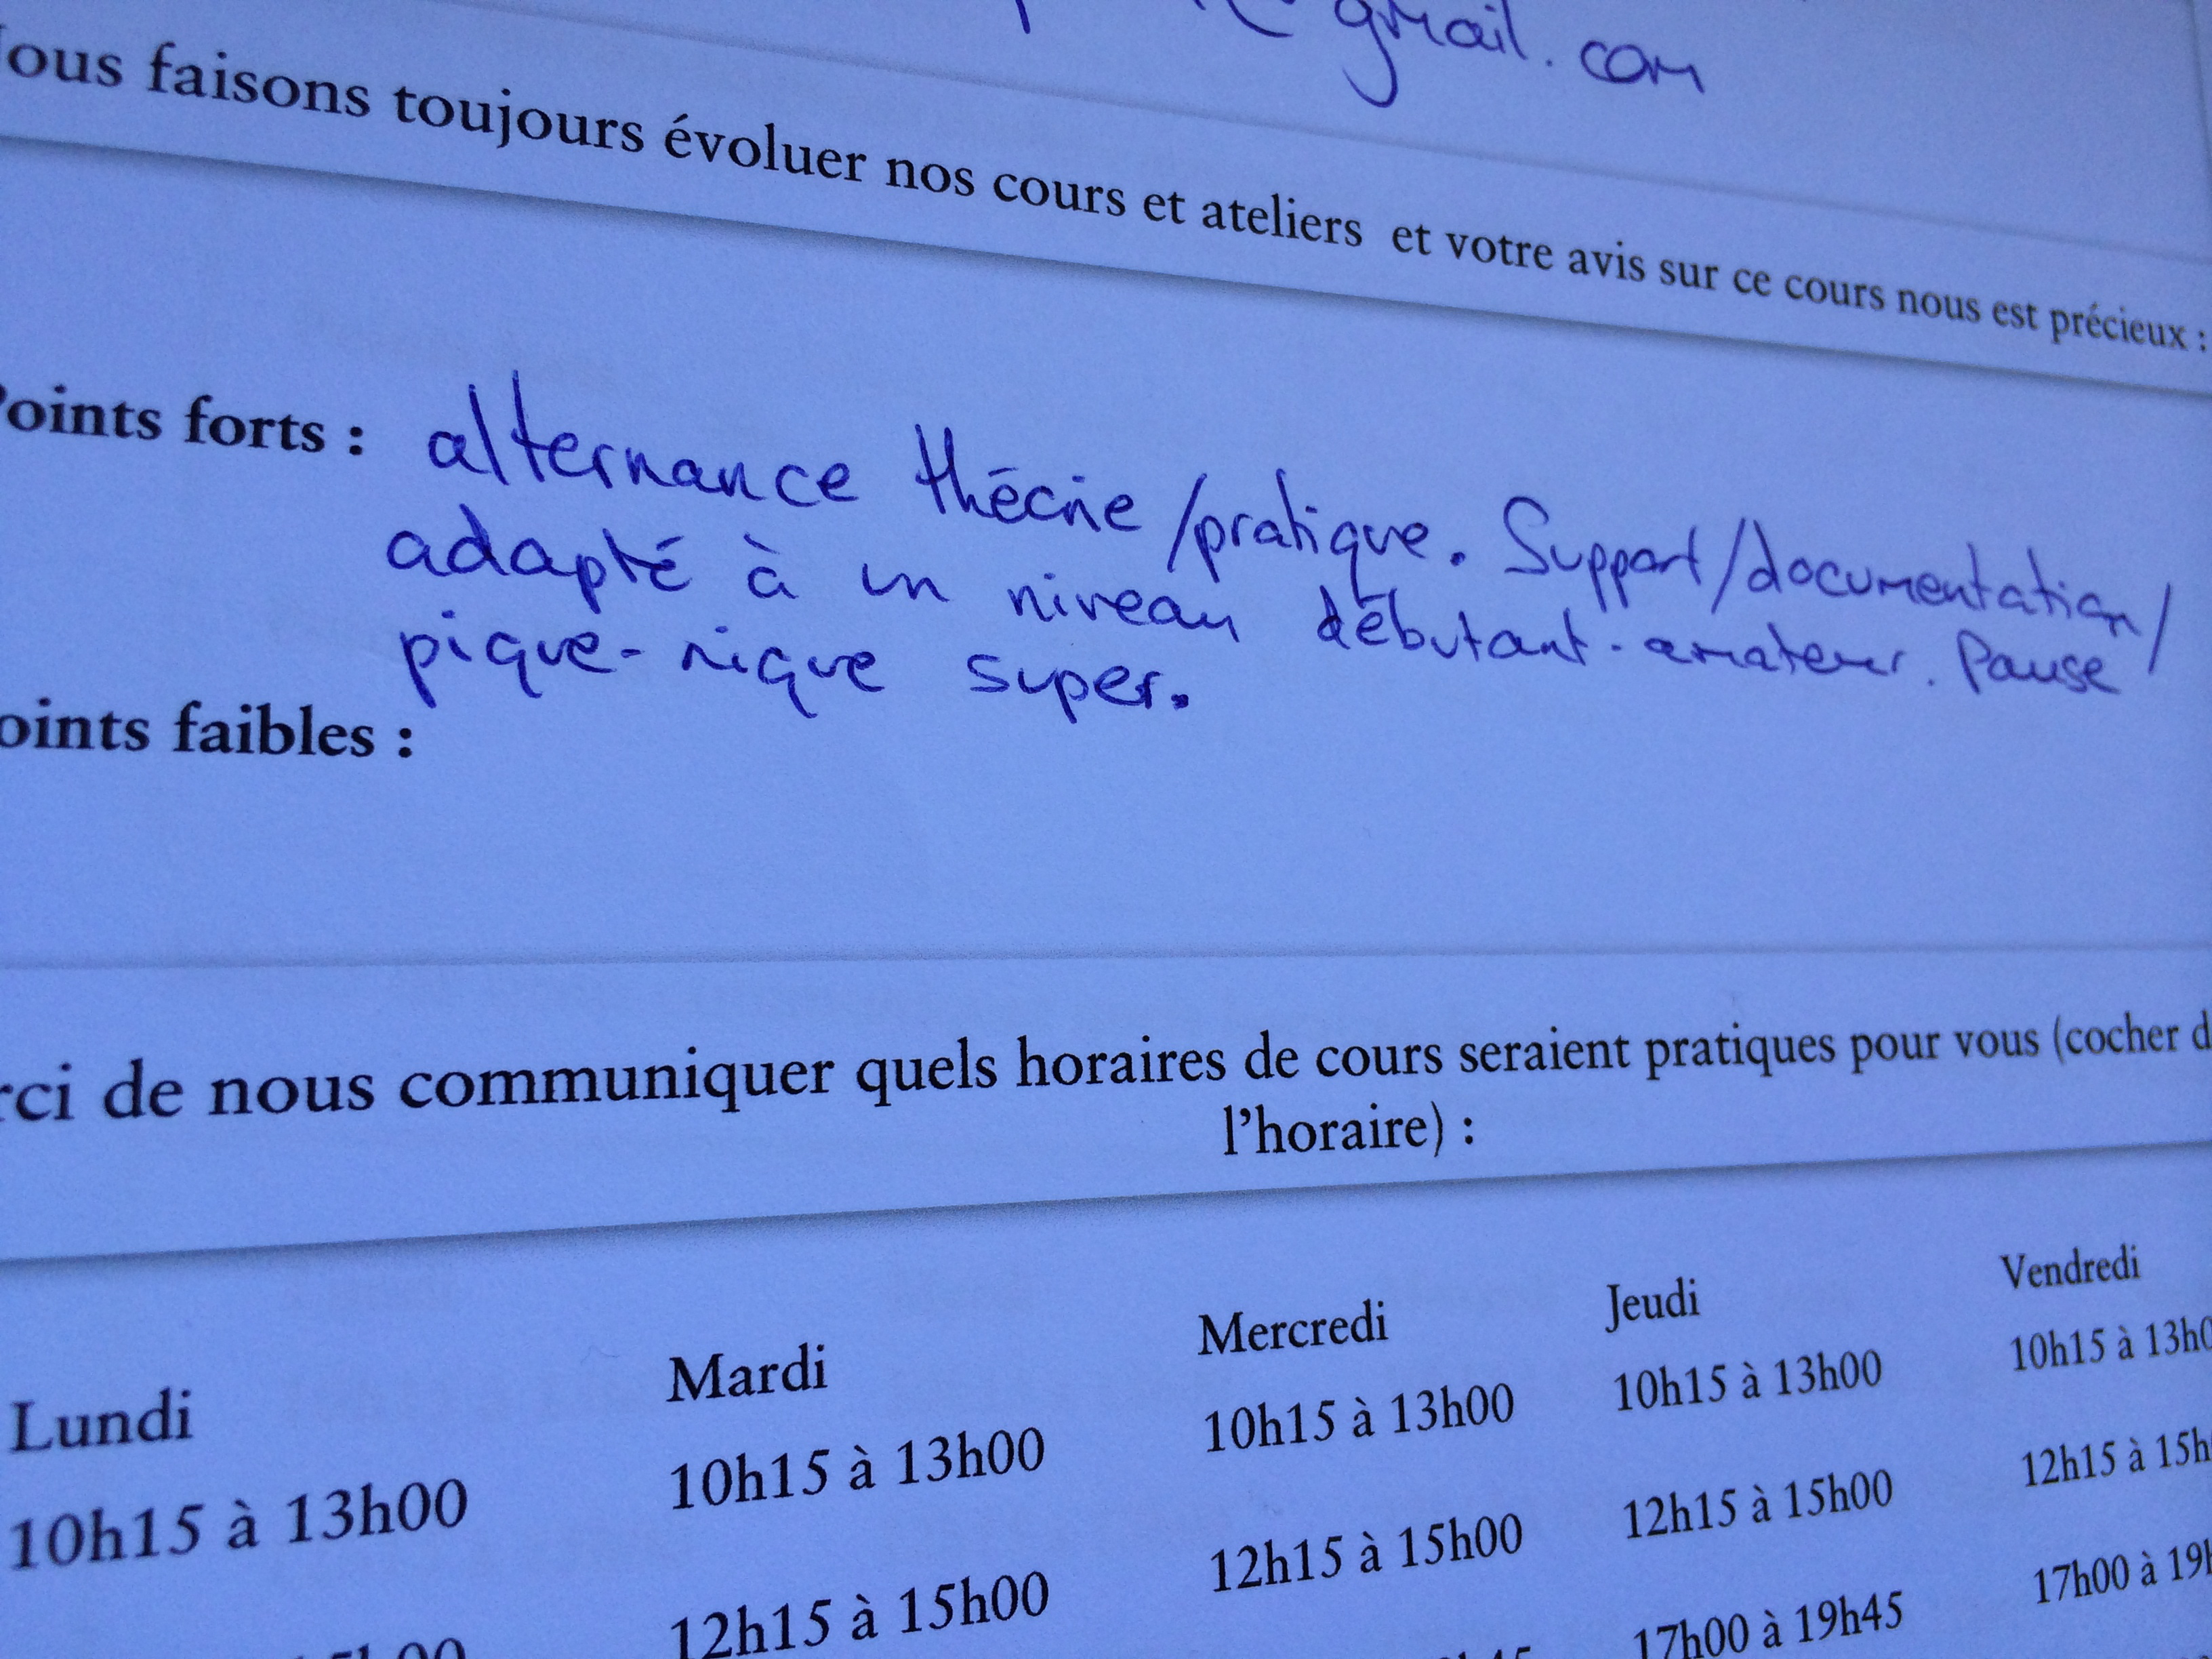 gmail.com
ous faisons toujours évoluer nos cours et ateliers et votre avis sur ce cours nous est précieux :
oints forts : alternance théorie/pratique. Support/documentation/
adapté à un niveau débutant-amateur. Pause
pique-nique super.
oints faibles :
rci de nous communiquer quels horaires de cours seraient pratiques pour vous (cocher d
l'horaire) :
Lundi Mardi Mercredi Jeudi Vendredi
10h15 à 13h00 10h15 à 13h00 10h15 à 13h00 10h15 à 13h00 10h15 à 13h0
12h15 à 15h00 12h15 à 15h00 12h15 à 15h00 12h15 à 15h
17h00 à 19h45 17h00 à 19h